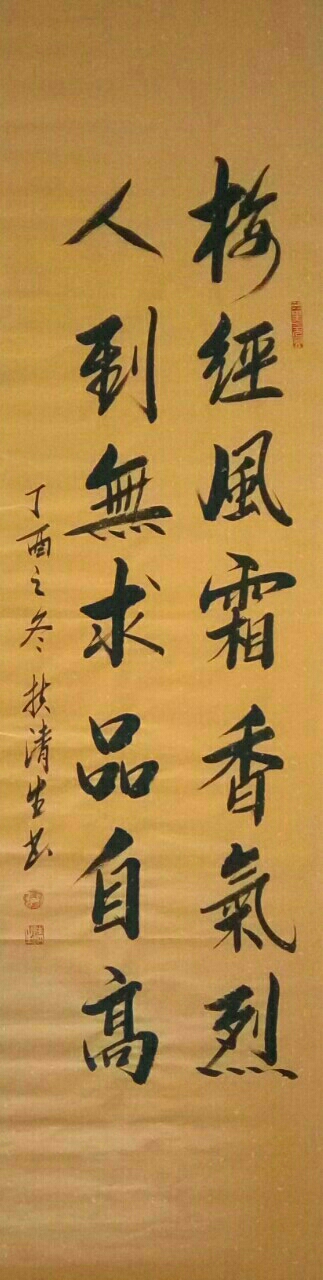 梅經風霜香氣烈
人到無求品自高
丁酉之冬扶清生书